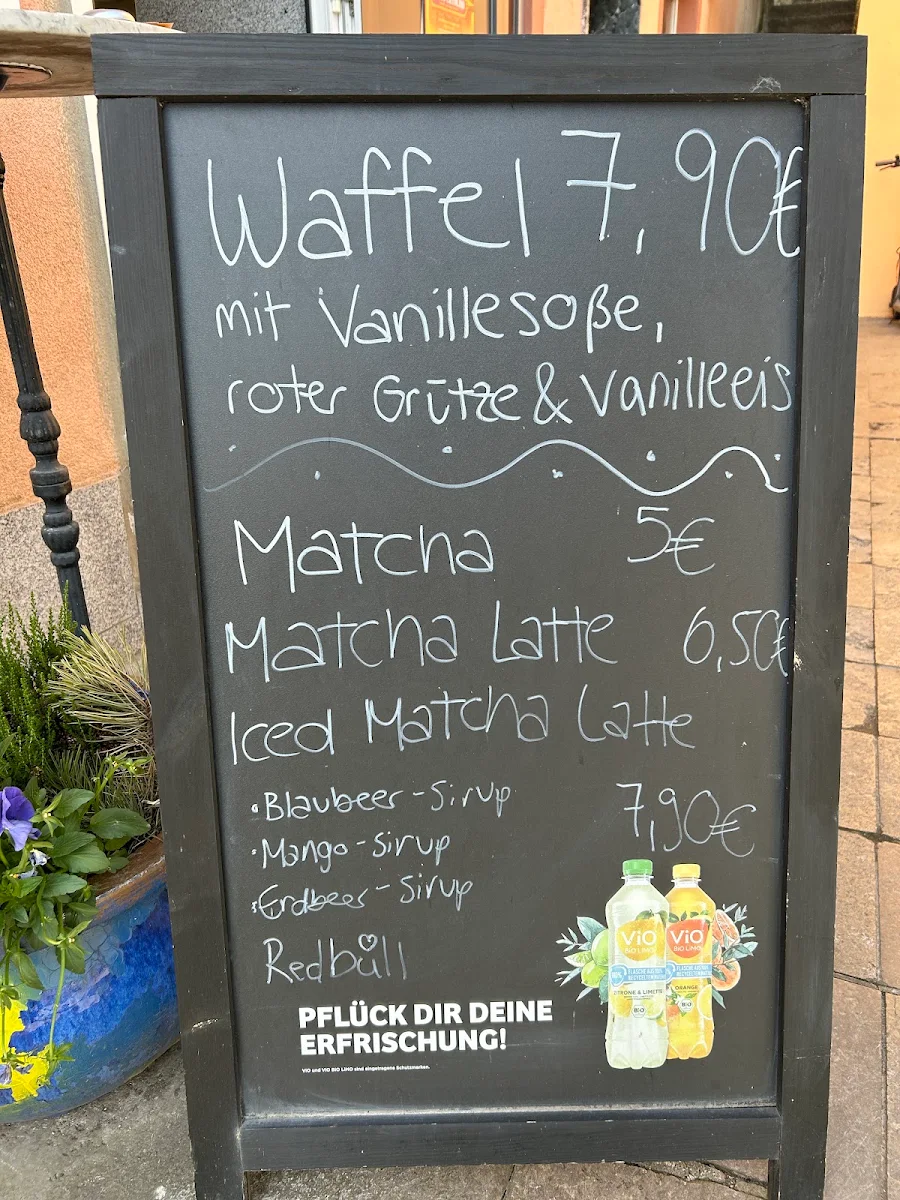 Waffel 7,90€
mit Vanillesoße,
roter Grütze & Vanilleeis
Matcha 5€
Matcha Latte 6,50€
Iced Matcha Latte
• Blaubeer-Sirup 7,90€
• Mango-Sirup
• Erdbeer-Sirup
Redbüll
PFLÜCK DIR DEINE
ERFRISCHUNG!
ViO und ViO BiO LiMO sind eingetragene Schutzmarken.
ViO ViO
BiO LiMO BiO LiMO
ZITRONE & LIMETTE ORANGE
BIO BIO